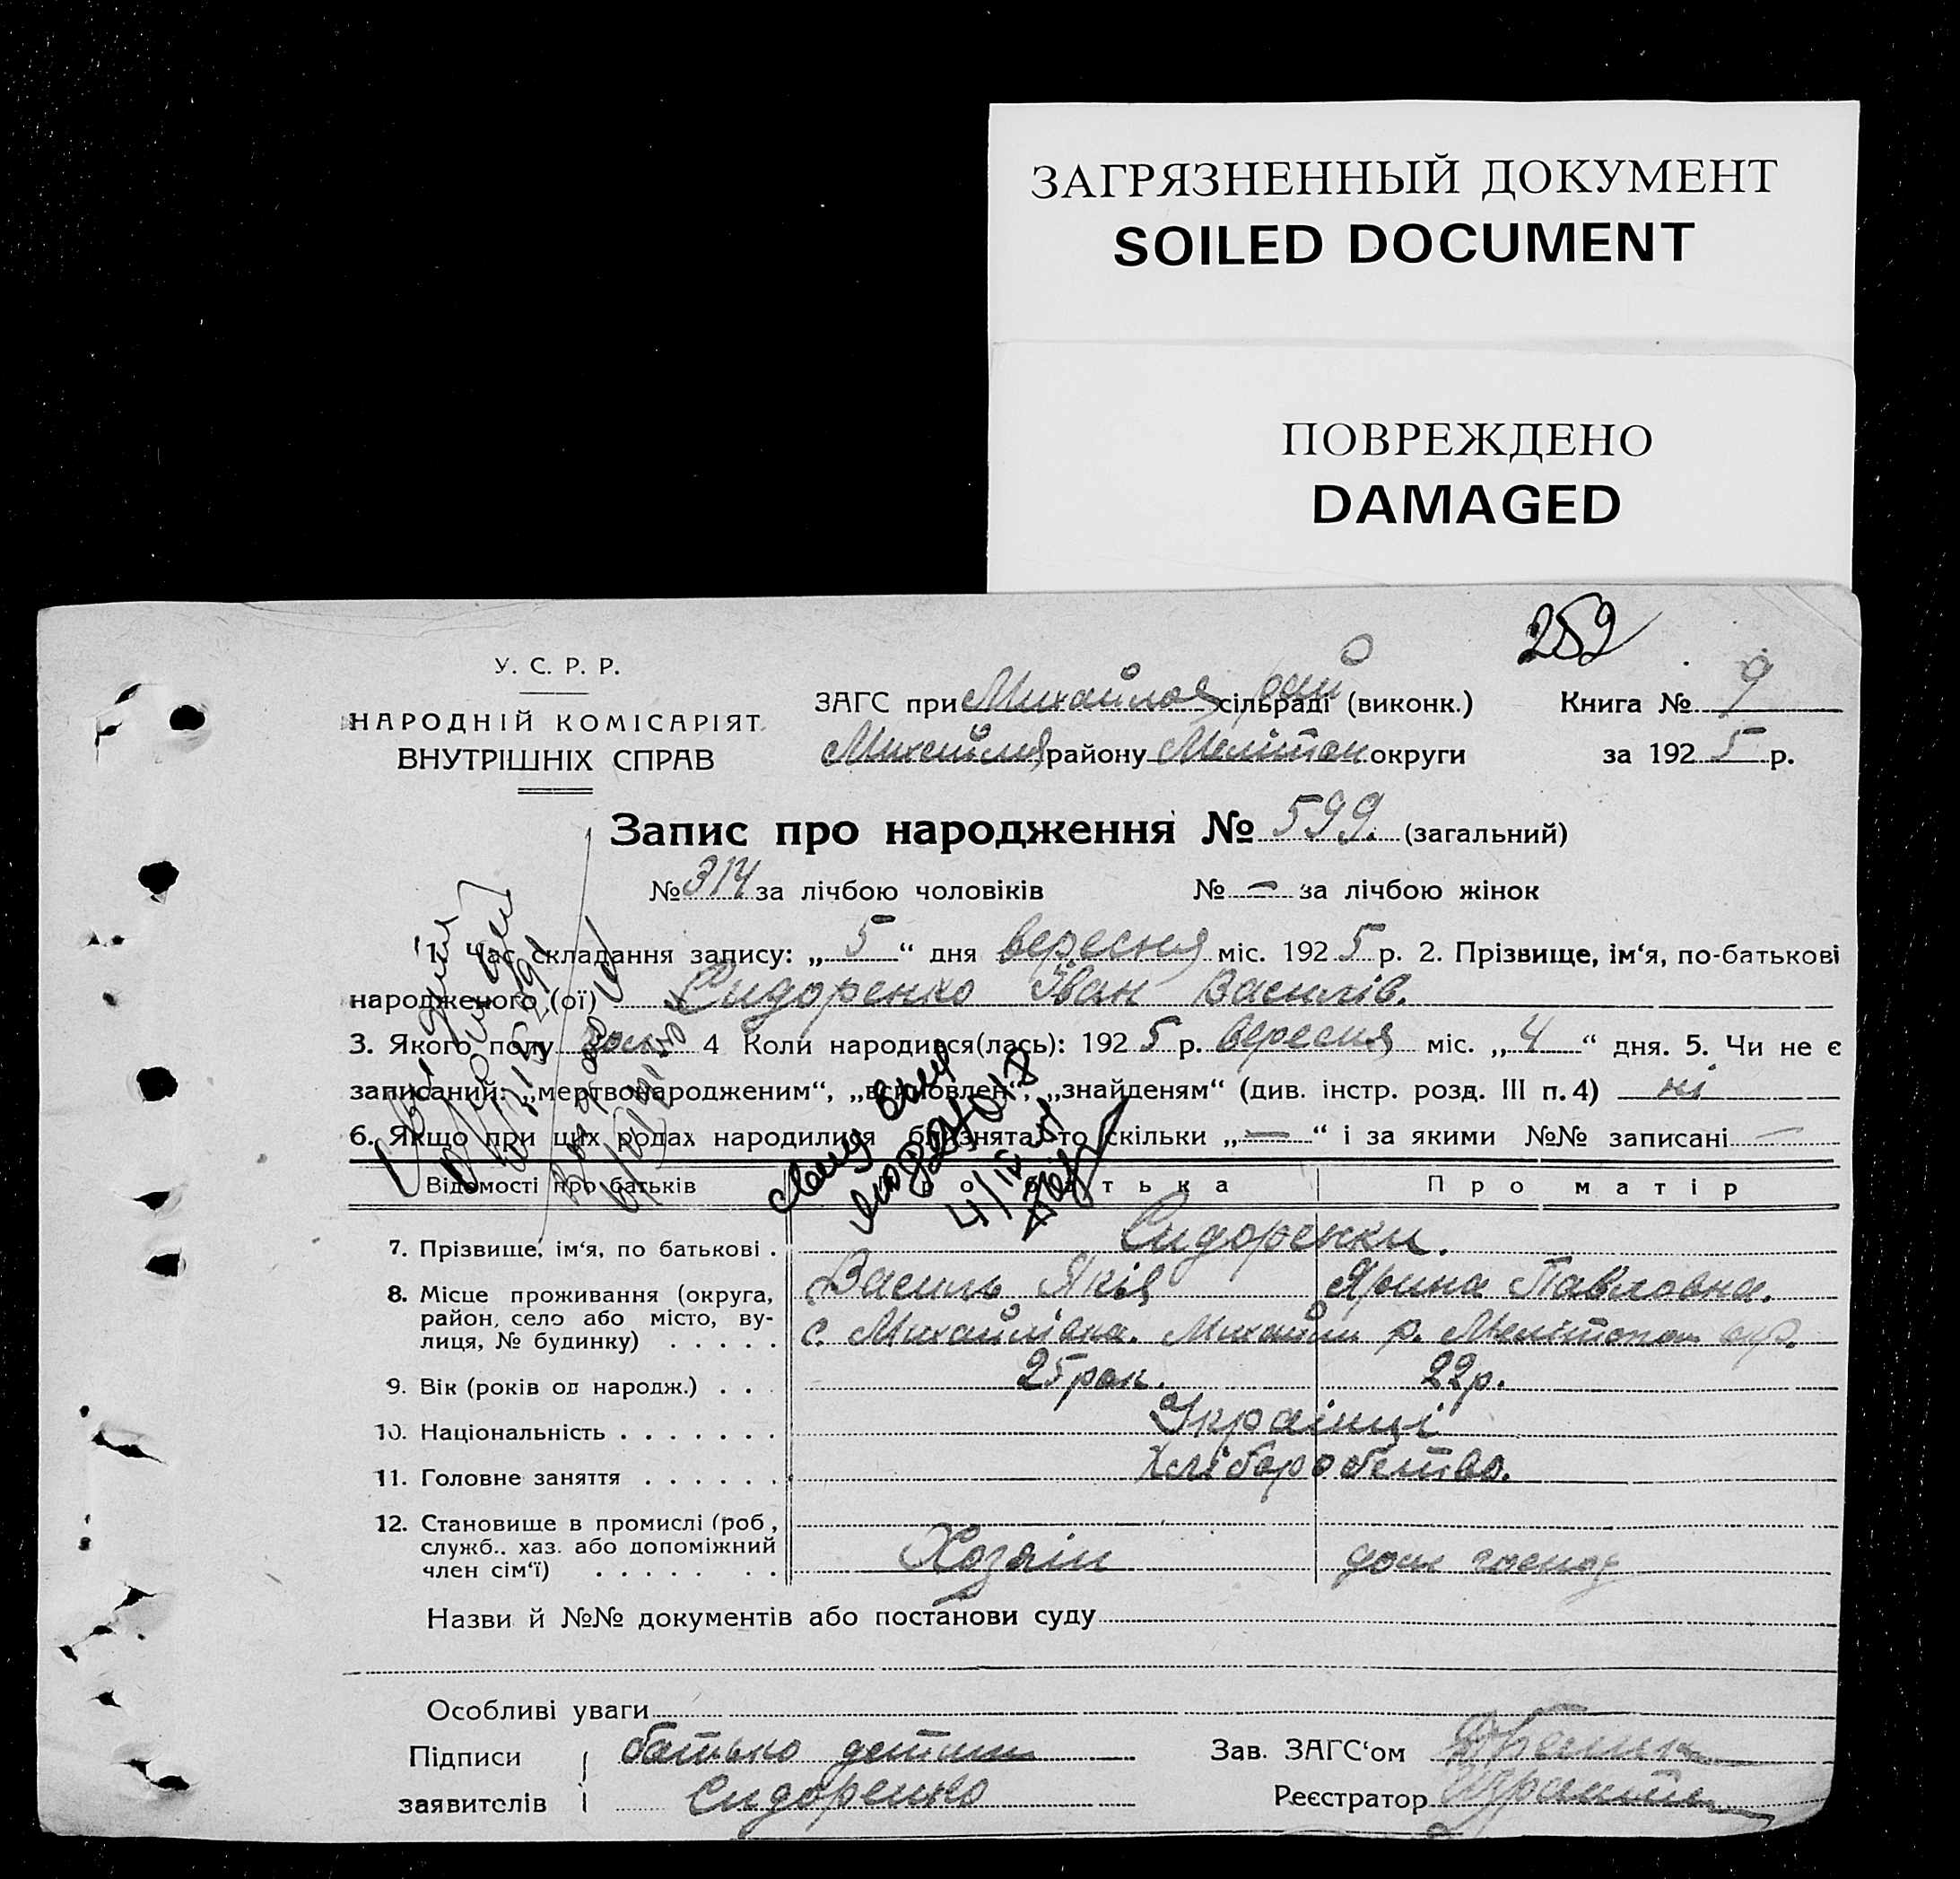 ЗАГРЯЗНЕННЫЙ ДОКУМЕНТ
SOILED DOCUMENT
ПОВРЕЖДЕНО
DAMAGED
252
У. С. Р. Р.
НАРОДНІЙ КОМІСАРІЯТ
ВНУТРІШНІХ СПРАВ
ЗАГС при Михайлов сільраді (виконк.) Книга № 9
району Мелітоп округи за 1925 р.
Запис про народження № 599. (загальний)
№ 314 за лічбою чоловіків № — за лічбою жінок
1. Час складання запису: „5“ дня вересня міс. 1925 р. 2. Прізвище, ім‘я, по-батькові
народженого (ої) Сидоренко Іван Василів.
3. Якого полу чол. 4 Коли народився(лась): 1925 р. вересня міс. „4“ дня. 5. Чи не є
записаний: „мертвонародженим“, „всиновлен“, „знайденям“ (див. інстр. розд. III п. 4) ні
6. Якщо при цих родах народилися близнята, то скільки „—“ і за якими №№ записані —
Відомості про батьків Про батька Про матір
7. Прізвище, ім‘я, по батькові . Сидоренки.
Василь Яків Ярина Павловна.
8. Місце проживання (округа,
район, село або місто, ву-
лиця, № будинку) . . . . .
с. Михайлівка. Михайл р. Мелітопол окр.
9. Вік (років од народж.) . . . 25 рок. 22 р.
10. Національність . . . . . . . Українці
11. Головне заняття . . . . . . Хліборобство.
12. Становище в промислі (роб.,
служб., хаз. або допоміжний
член сім‘ї) . . . . . . .
Хозяїн дом господ
Назви й №№ документів або постанови суду
Особливі уваги
Підписи батько дитини Зав. ЗАГС‘ом
заявителів Сидоренко Реєстратор